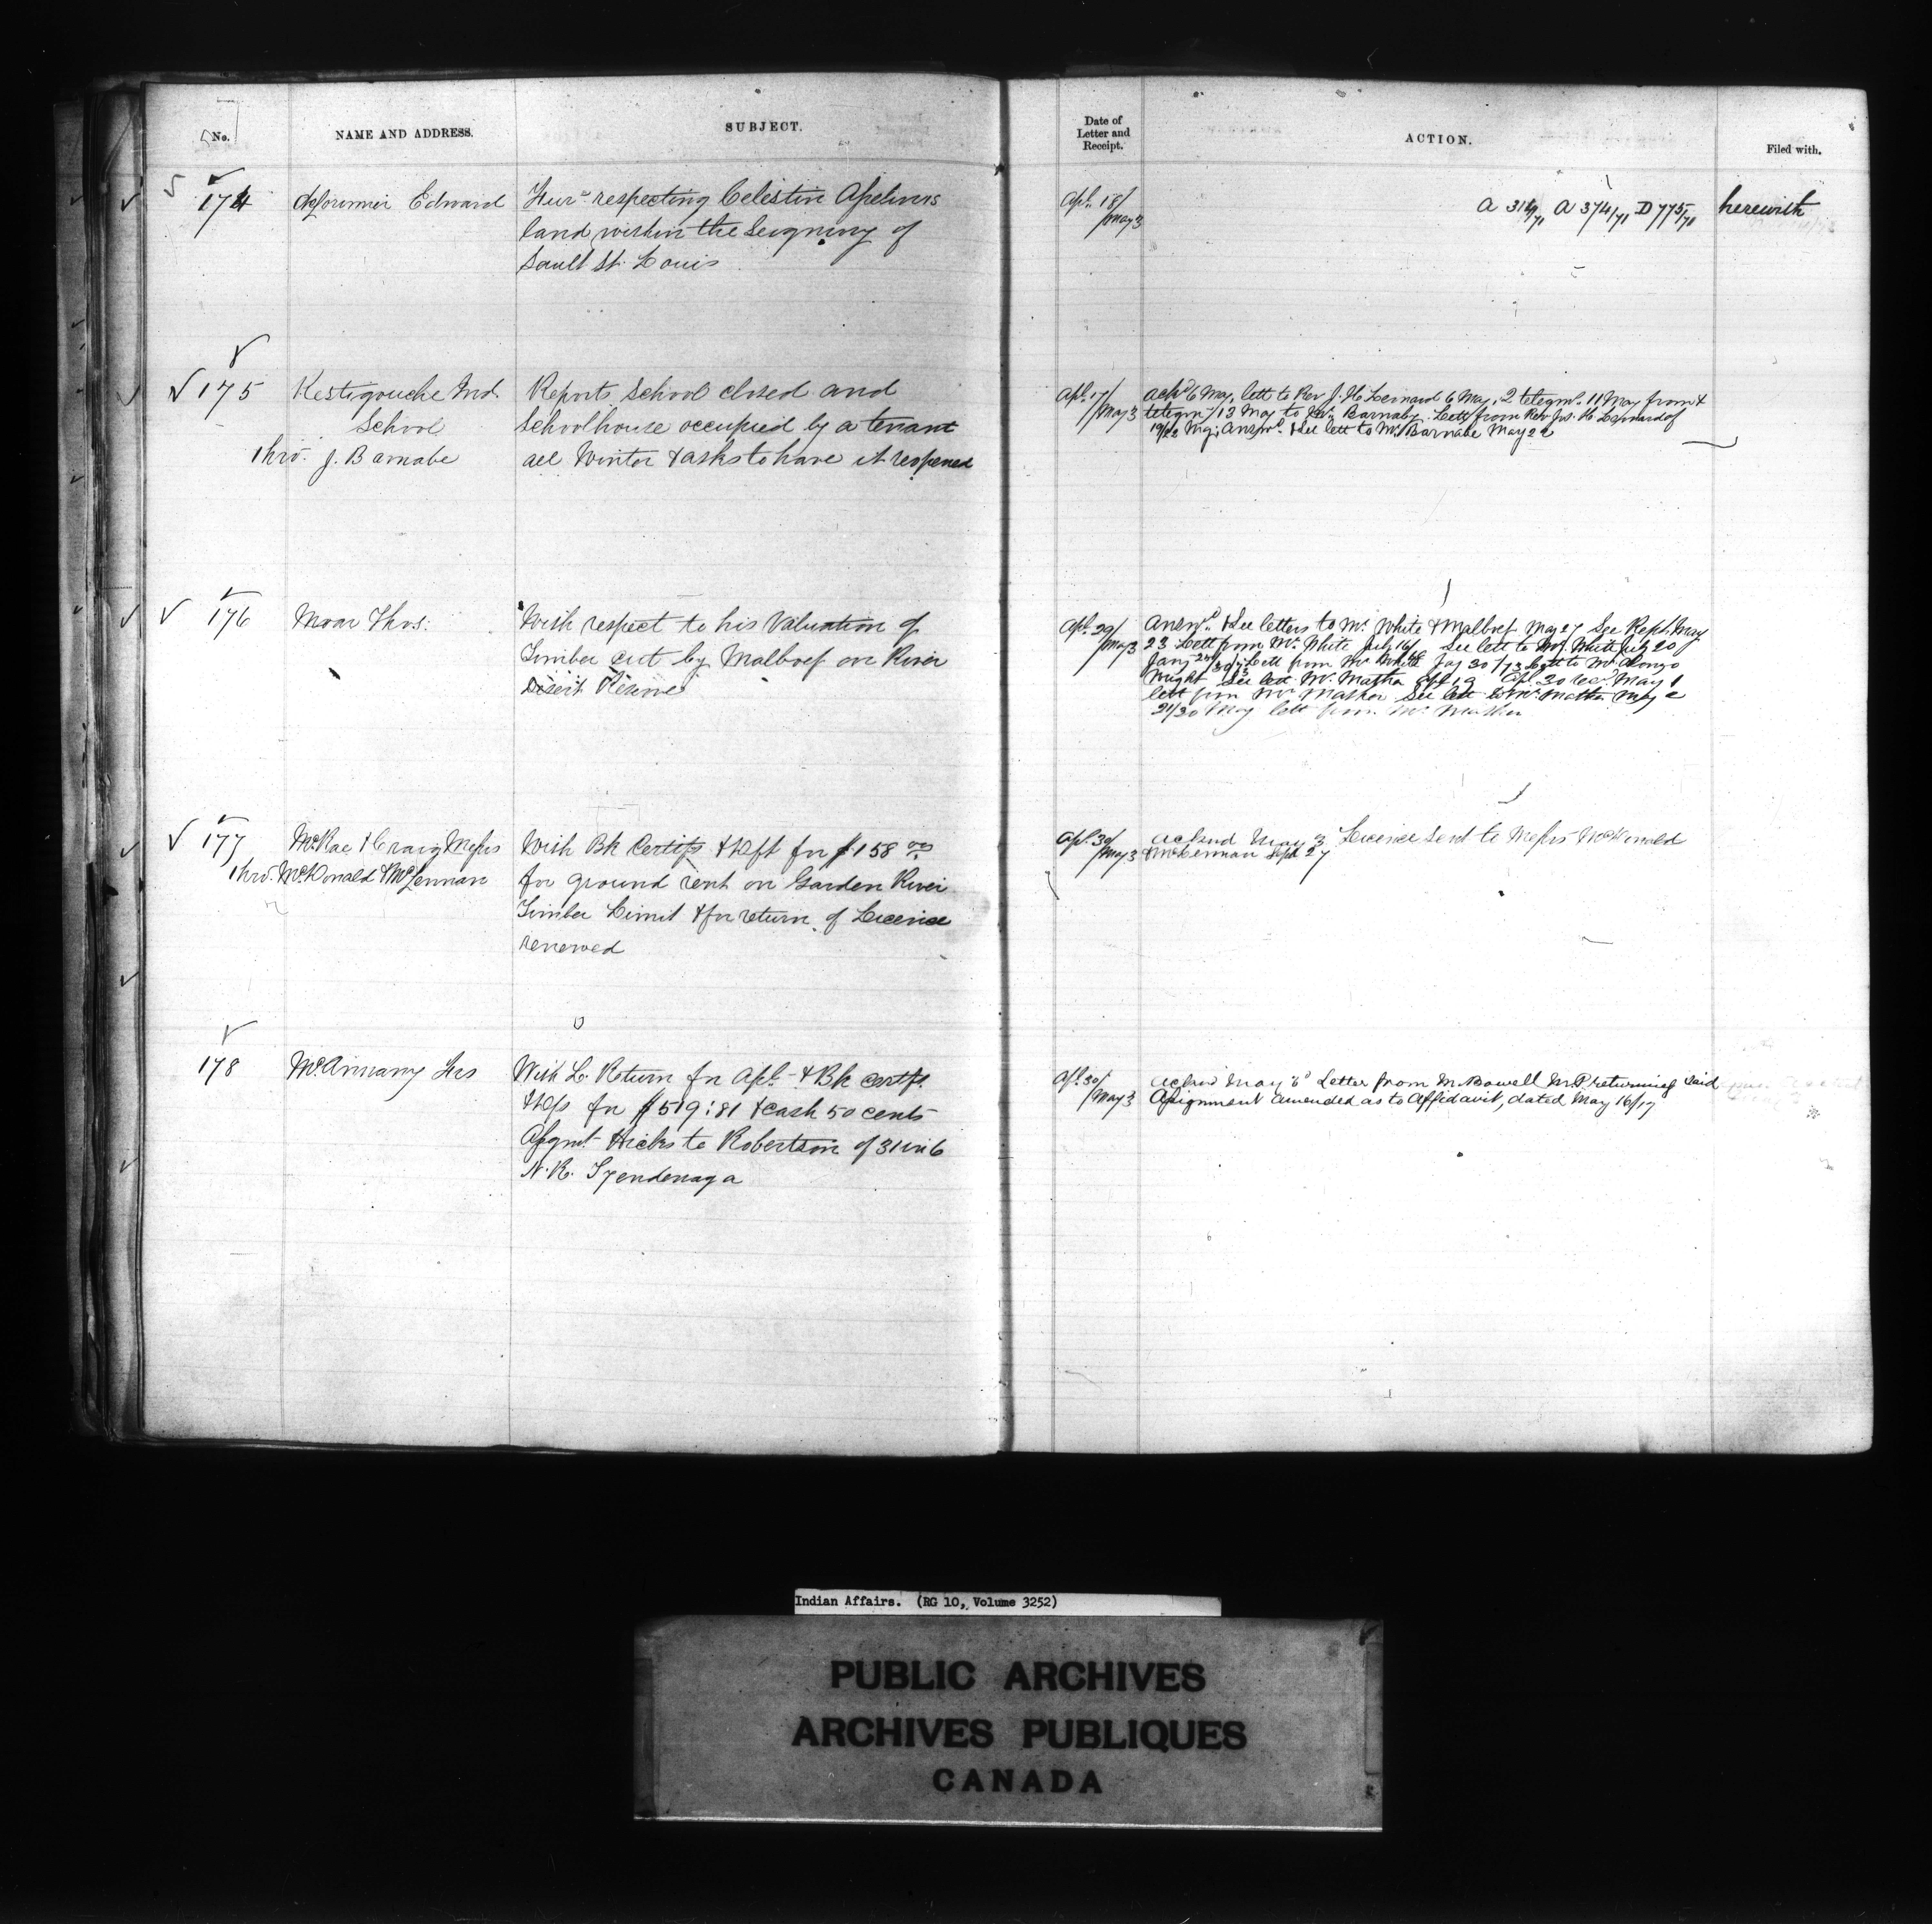 No.
NAME AND ADDRESS.
SUBJECT.
Date of
Letter and
Receipt.
ACTION.
Filed with.
174
deLorimier Edward
Fur. respecting Celestin Aselin's
land within the Seigniory of
Sault St. Louis
Apl. 18/
May 3
A 314/71 A 374/71 D 775/71
herewith
175
Restigouche Ind.
School
thro. J. Barnabe
Reports School closed and
Schoolhouse occupied by a tenant
all Winter & asks to have it reopened
Apl. 17/
May 3
Ackd 6 May, lett to Rev J. H. Leonard 6 May, 2 telegms. 11 May from &
telegm/ 13 May to Barnaby. Lett from Rev Jos. H. Leonard of
Answd. & See lett to Mr. Barnabe May 22
176
Moar Thos.
With respect to his Valuation of
Timber cut by Malboef on River
Desert Reserve
Apl. 29/
May 3
Answd. & See letters to Mr. White & Malboef May 27 See Rept. May
23 Lett from Mr. White July 16/ See lett to Mr. White July 20
Lett from Mr. White Jany 30/73 Lett to Mr. Alonzo
Wright See lett Mr. Mather Apl. 19 Apl. 30 rec. May 1
lett from Mr. Mather See lett to Mr. Mather May 2
21/20 May lett from Mr. Mather
177
McRae & Craig Messrs
thro. McDonald & McLennan
With Bk Certif & Dft for $158 00
for ground rent on Garden River
Timber Limit & for return of License
renewed
Apl. 30/
May 3
Acknd May 3 License Sent to Messrs McDonald
& McLennan Sept 27
178
McAnnany Frs
With L. Return for Apl. & Bk Certfs
& Dfs for $519:81 & Cash 50 cents
Assgmt. Hicks to Robertson of 31 in 6
N. R. Tyendenaga
Apl. 30/
May 3
Acknd May 6 Letter from M. Bowell M.P. returning said
Assignment amended as to Affidavit, dated May 16/17
Indian Affairs. (RG 10, Volume 3252)
PUBLIC ARCHIVES
ARCHIVES PUBLIQUES
CANADA